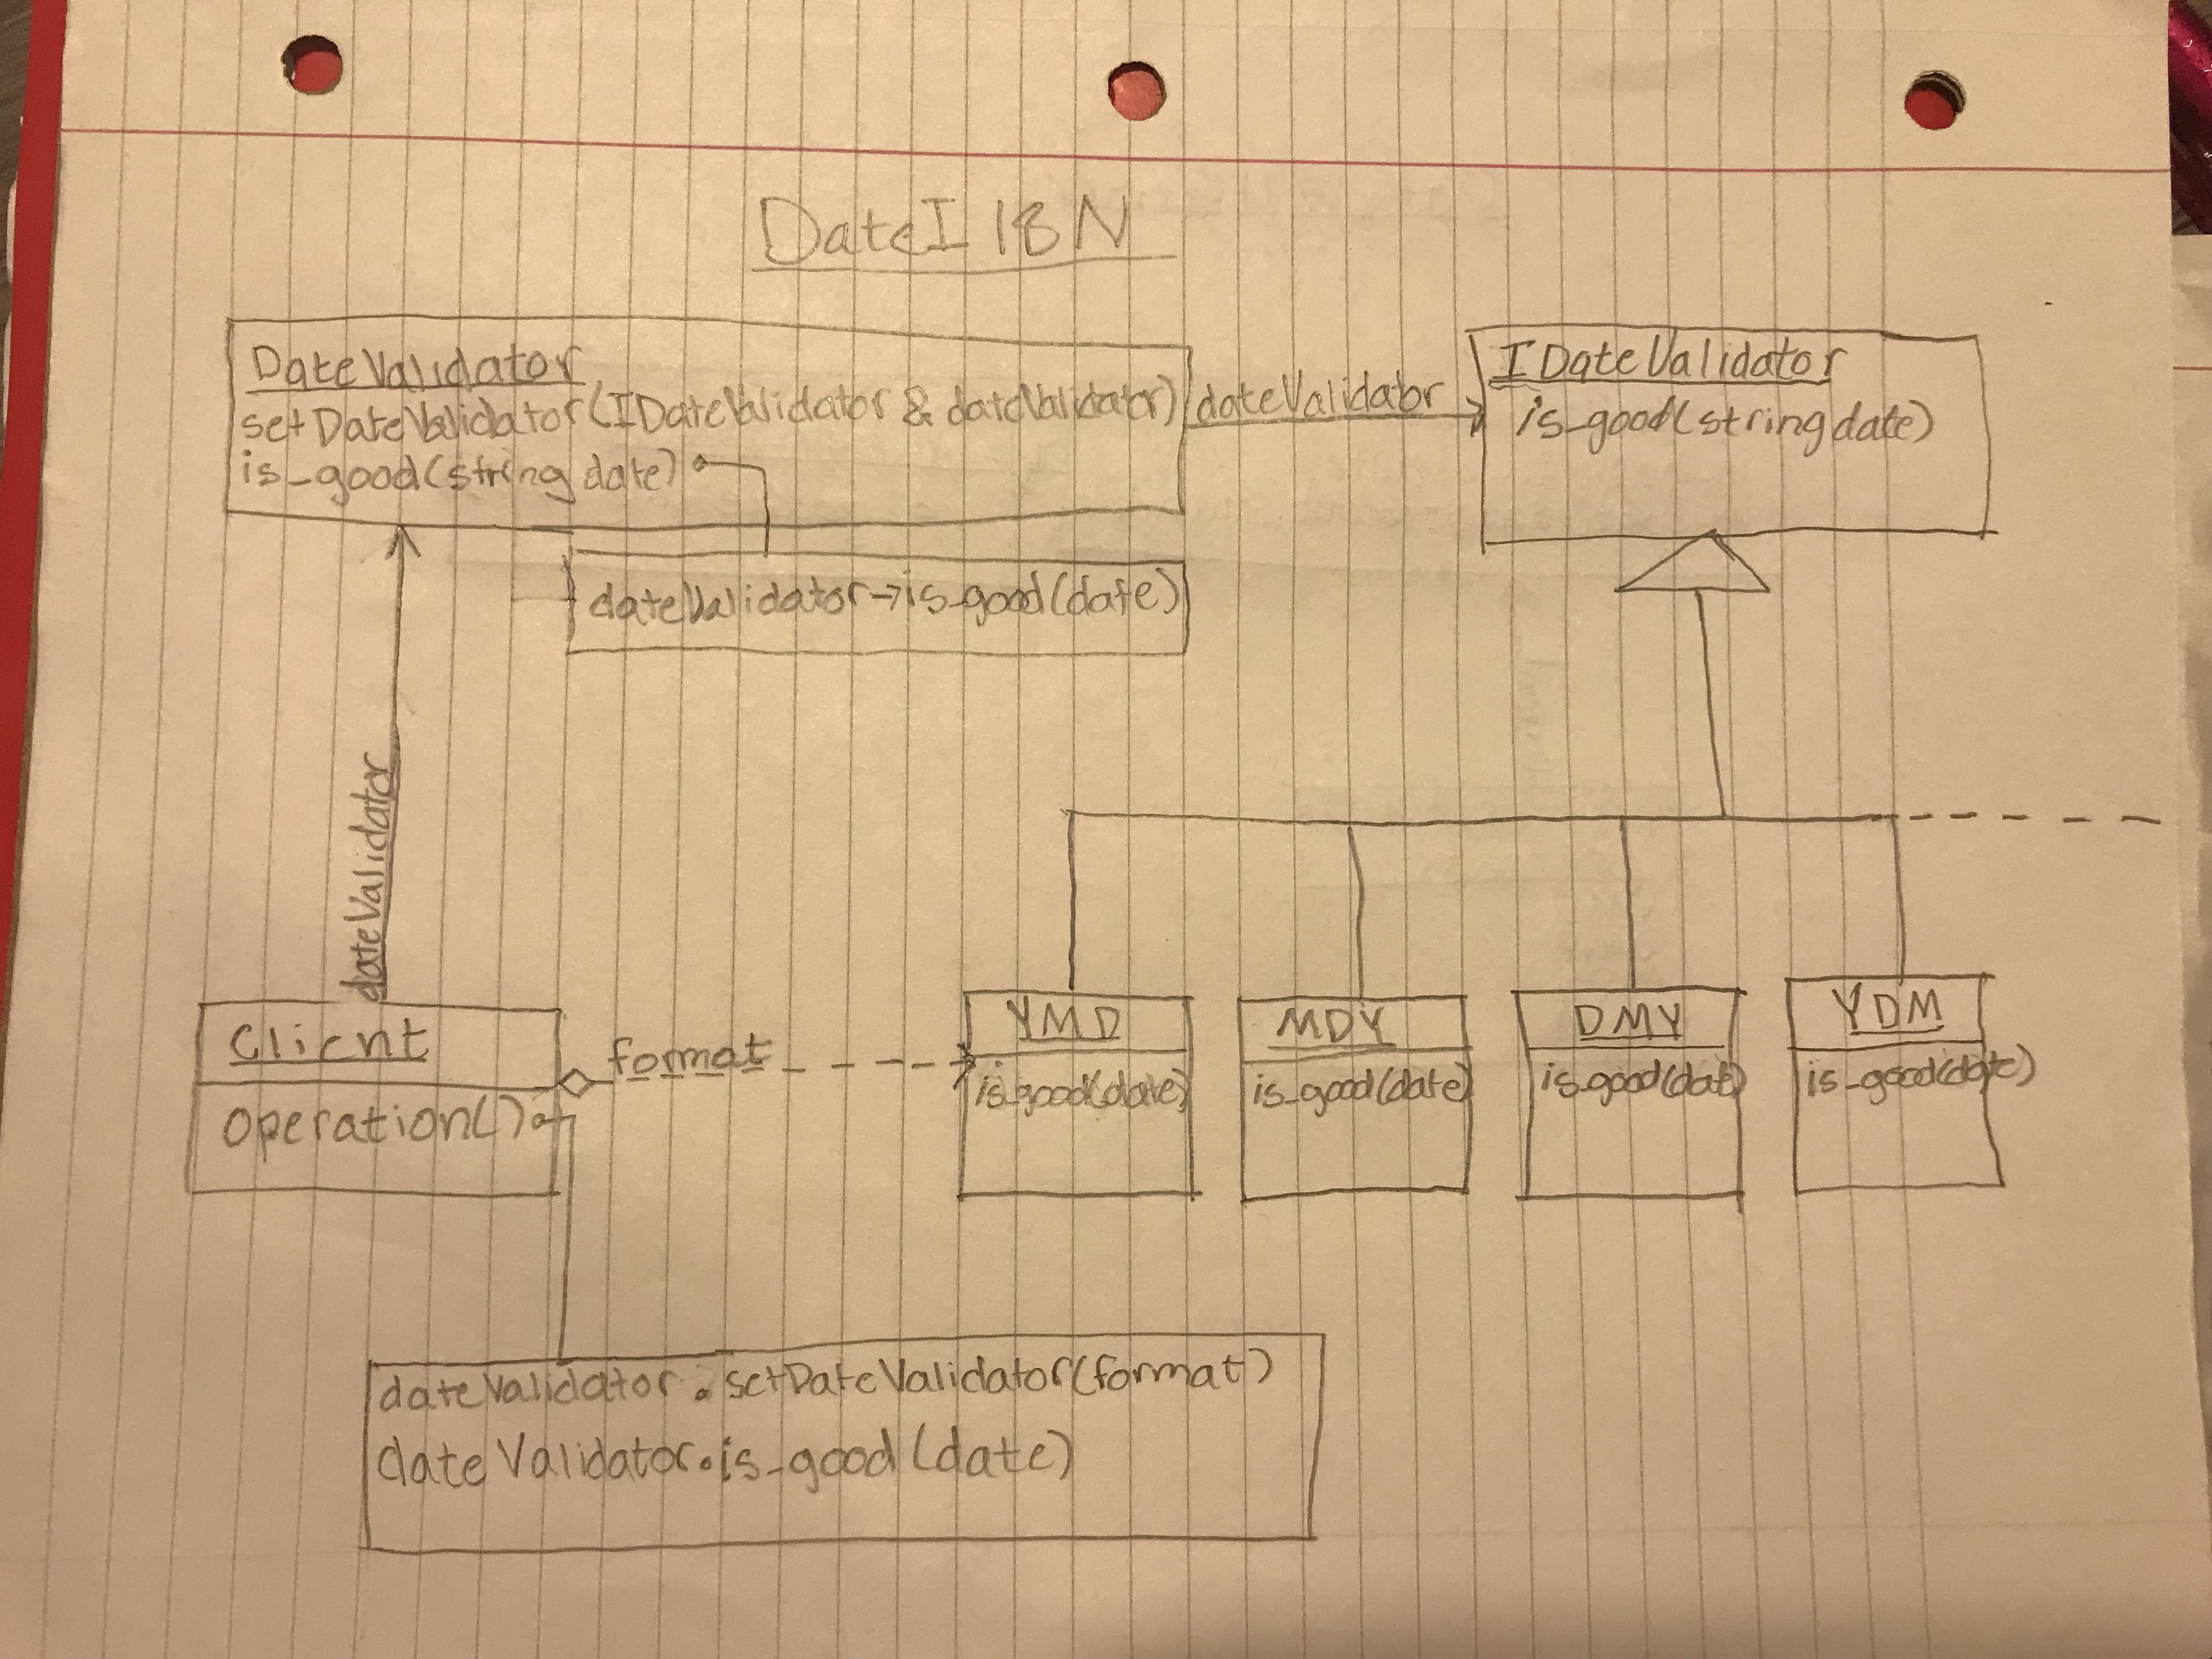 DateI18N
DateValidator
setDateValidator(IDateValidator & dateValidator)
is_good(string date)
dateValidator
IDateValidator
is_good(string date)
dateValidator→is_good(date)
dateValidator
Client
operation()
format
YMD
is_good(date)
MDY
is_good(date)
DMY
is_good(dat)
YDM
is_good(date)
dateValidator.setDateValidator(format)
dateValidator.is_good(date)